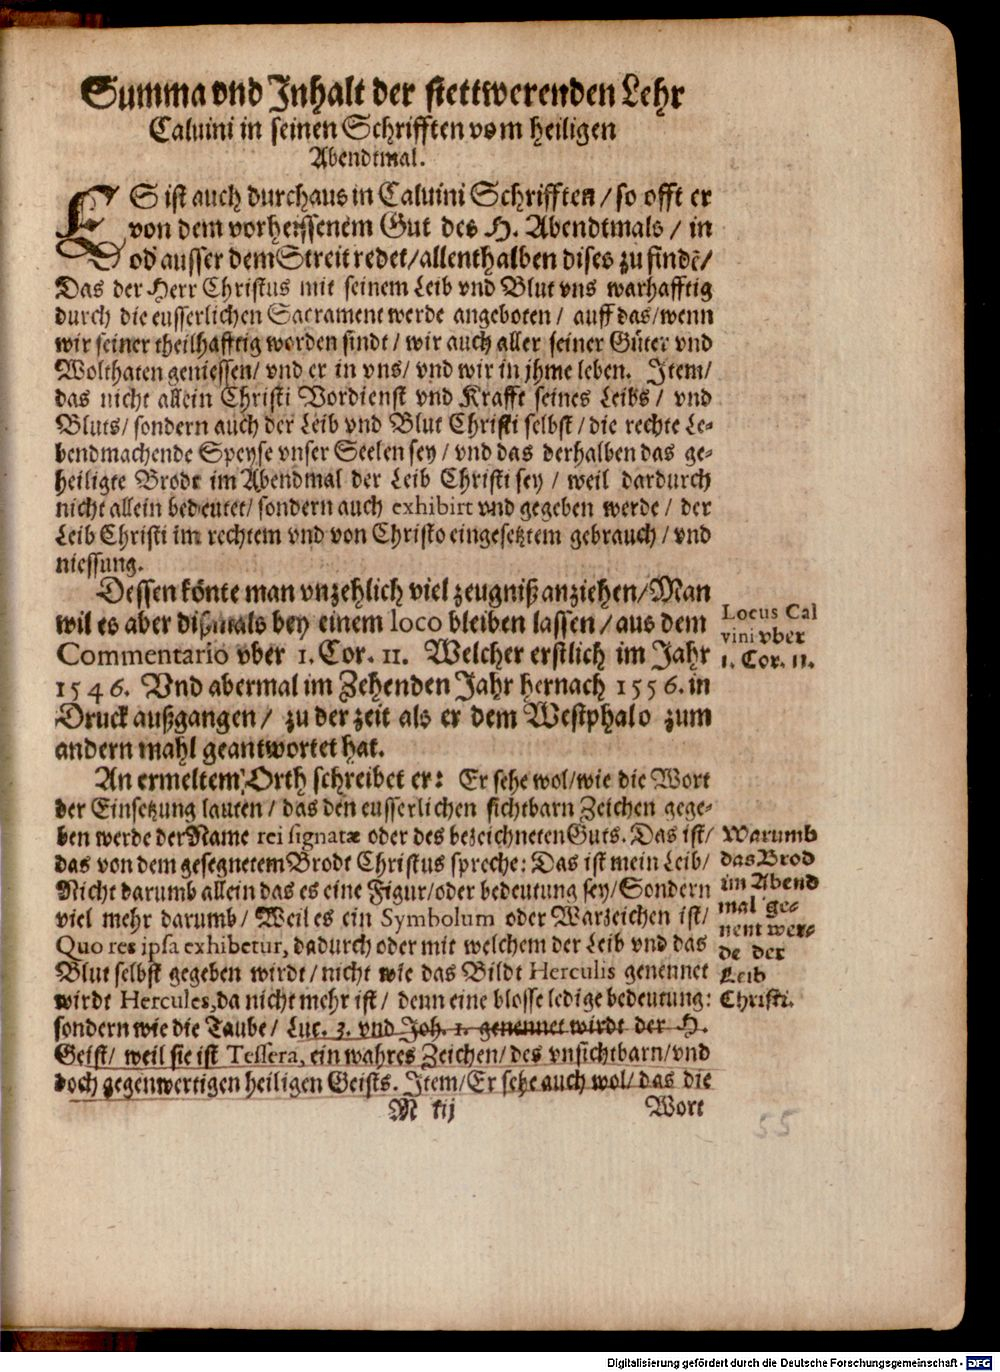 Summa vnd Inhalt der stettwerenden Lehr
Caluini in seinen Schrifften vom heiligen
Abendtmal.
ES ist auch durchaus in Caluini Schrifften / so offt er
von dem vorheissenem Gut des H. Abendtmals / in
od' ausser dem Streit redet / allenthalben dises zu findē /
Das der Herr Christus mit seinem Leib vnd Blut vns warhafftig
durch die eusserlichen Sacrament werde angeboten / auff das / wenn
wir seiner theilhafftig worden sindt / wir auch aller seiner Güter vnd
Wolthaten geniessen / vnd er in vns / vnd wir in jhme leben. Item /
das nicht allein Christi Vordienst vnd Krafft seines Leibs / vnd
Bluts / sondern auch der Leib vnd Blut Christi selbst / die rechte Le-
bendmachende Speyse vnser Seelen sey / vnd das derhalben das ge-
heiligte Brodt im Abendmal der Leib Christi sey / weil dardurch
nicht allein bedeutet / sondern auch exhibirt vnd gegeben werde / der
Leib Christi im rechtem vnd von Christo eingesetztem gebrauch / vnd
niessung.
Dessen könte man vnzehlich viel zeugniß anziehen / Man
wil es aber dißmals bey einem loco bleiben lassen / aus dem
Commentario vber 1. Cor. 11. Welcher erstlich im Jahr
1546. Vnd abermal im Zehenden Jahr hernach 1556. in
Druck außgangen / zu der zeit als er dem Westphalo zum
andern mahl geantwortet hat.
Locus Cal
vini vber
1. Cor. 11.
An ermeltem Orth schreibet er: Er sehe wol / wie die Wort
der Einsetzung lauten / das den eusserlichen sichtbarn Zeichen gege-
ben werde der Name rei signatæ oder des bezeichneten Guts. Das ist /
das von dem gesegnetem Brodt Christus spreche: Das ist mein Leib /
Nicht darumb allein das es eine Figur / oder bedeutung sey / Sondern
viel mehr darumb / Weil es ein Symbolum oder Warzeichen ist /
Quo res ipsa exhibetur, dadurch oder mit welchem der Leib vnd das
Blut selbst gegeben wirdt / nicht wie das Bildt Herculis genennet
wirdt Hercules, da nicht mehr ist / denn eine blosse ledige bedeutung:
sondern wie die Taube / Luc. 3. vnd Joh. 1. genennet wirdt der H.
Geist / weil sie ist Tessera, ein wahres Zeichen / des vnsichtbarn / vnd
doch gegenwertigen heiligen Geists. Item / Er sehe auch wol / das die
Warumb
das Brod
im Abend
mal ge-
nent wer-
de der
Leib
Christi.
M iij
Wort
55
Digitalisierung gefördert durch die Deutsche Forschungsgemeinschaft - DFG